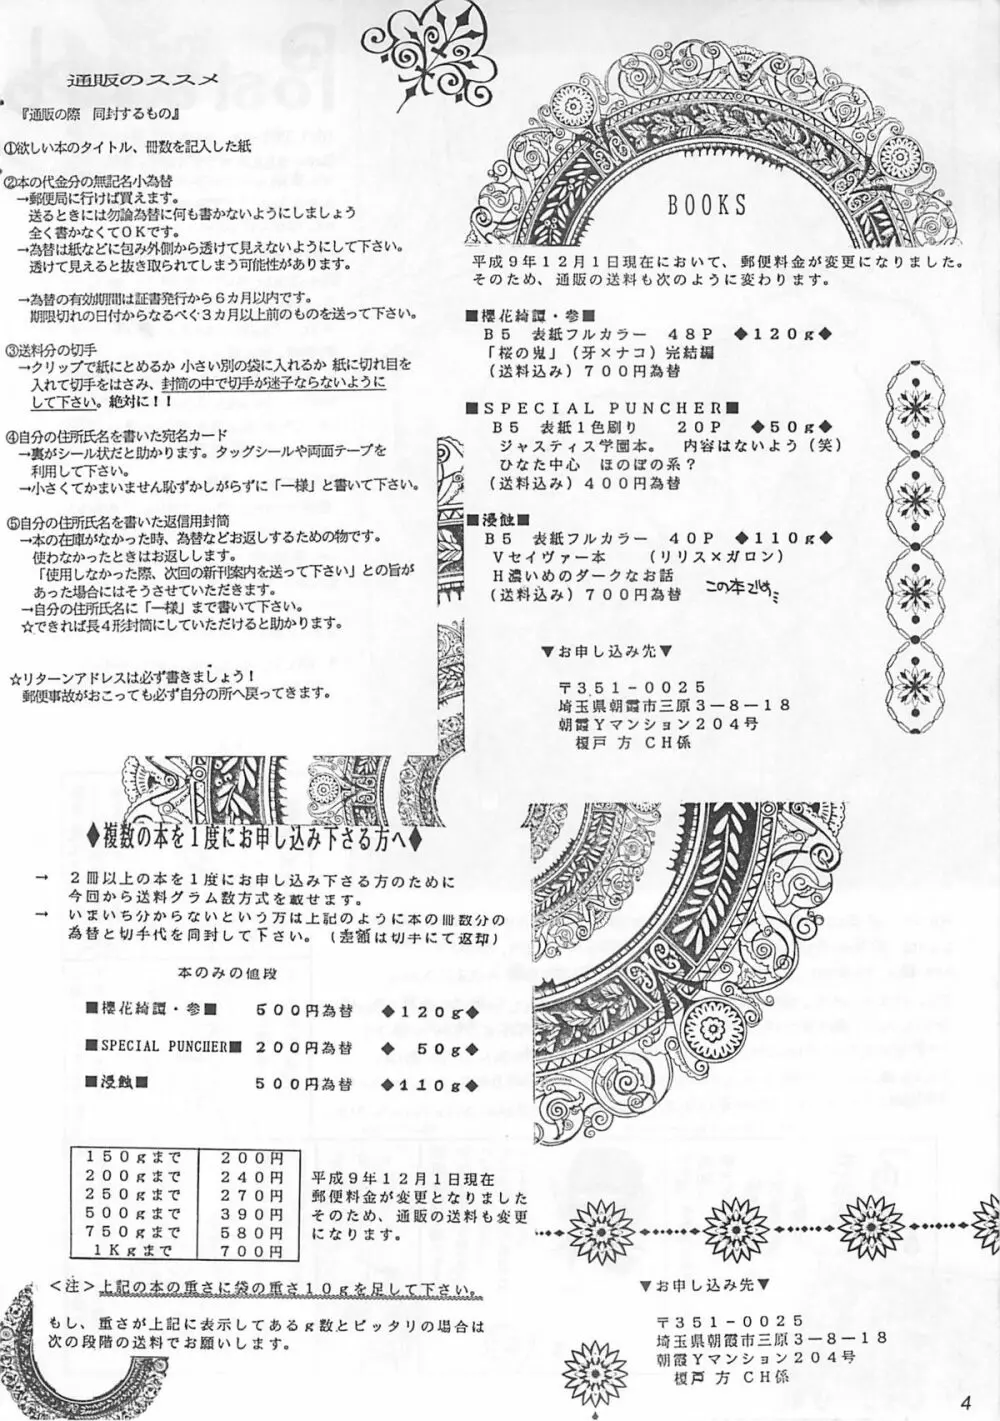 通販のススメ
『通販の際　同封するもの』
①欲しい本のタイトル、冊数を記入した紙
②本の代金分の無記名小為替
→郵便局に行けば買えます。
送るときには勿論為替に何も書かないようにしましょう
全く書かなくてＯＫです。
→為替は紙などに包み外側から透けて見えないようにして下さい。
透けて見えると抜き取られてしまう可能性があります。
→為替の有効期間は証書発行から６カ月以内です。
期限切れの日付からなるべく３カ月以上前のものを送って下さい。
③送料分の切手
→クリップで紙にとめるか 小さい別の袋に入れるか 紙に切れ目を
入れて切手をはさみ、封筒の中で切手が迷子ならないように
して下さい。絶対に！！
④自分の住所氏名を書いた宛名カード
→裏がシール状だと助かります。タックシールや両面テープを
利用して下さい。
→小さくてかまいません恥ずかしがらずに「一様」と書いて下さい。
⑤自分の住所氏名を書いた返信用封筒
→本の在庫がなかった時、為替などお返しするための物です。
使わなかったときはお返しします。
「使用しなかった際、次回の新刊案内を送って下さい」との旨が
あった場合にはそうさせていただきます。
→自分の住所氏名に「一様」まで書いて下さい。
☆できれば長４形封筒にしていただけると助かります。
☆リターンアドレスは必ず書きましょう！
郵便事故がおこっても必ず自分の所へ戻ってきます。
ＢＯＯＫＳ
平成９年１２月１日現在において、郵便料金が変更になりました。
そのため、通販の送料も次のように変わります。
■櫻花綺譚・参■
Ｂ５　表紙フルカラー　４８Ｐ　◆１２０ｇ◆
「桜の鬼」（牙×ナコ）完結編
（送料込み）７００円為替
■ＳＰＥＣＩＡＬ ＰＵＮＣＨＥＲ■
Ｂ５　表紙１色刷り　２０Ｐ　◆５０ｇ◆
ジャスティス学園本。　内容はないよう（笑）
ひなた中心　ほのぼの系？
（送料込み）４００円為替
■浸蝕■
Ｂ５　表紙フルカラー　４０Ｐ　◆１１０ｇ◆
Ｖセイヴァー本　（リリス×ガロン）
Ｈ濃いめのダークなお話
（送料込み）７００円為替　この本です
▼お申し込み先▼
〒３５１－００２５
埼玉県朝霞市三原３－８－１８
朝霞Ｙマンション２０４号
榎戸 方 ＣＨ係
◆複数の本を１度にお申し込み下さる方へ◆
→　２冊以上の本を１度にお申し込み下さる方のために
今回から送料グラム数方式を載せます。
→　いまいち分からないという方は上記のように本の冊数分の
為替と切手代を同封して下さい。（差額は切手にて返却）
本のみの値段
■櫻花綺譚・参■　５００円為替　◆１２０ｇ◆
■SPECIAL PUNCHER■　２００円為替　◆　５０ｇ◆
■浸蝕■　５００円為替　◆１１０ｇ◆
１５０ｇまで　２００円
２００ｇまで　２４０円
２５０ｇまで　２７０円
５００ｇまで　３９０円
７５０ｇまで　５８０円
１Ｋｇまで　７００円
平成９年１２月１日現在
郵便料金が変更となりました
そのため、通販の送料も変更
になります。
＜注＞上記の本の重さに袋の重さ１０ｇを足して下さい。
もし、重さが上記に表示してあるｇ数とピッタリの場合は
次の段階の送料でお願いします。
▼お申し込み先▼
〒３５１－００２５
埼玉県朝霞市三原３－８－１８
朝霞Ｙマンション２０４号
榎戸 方 ＣＨ係
4